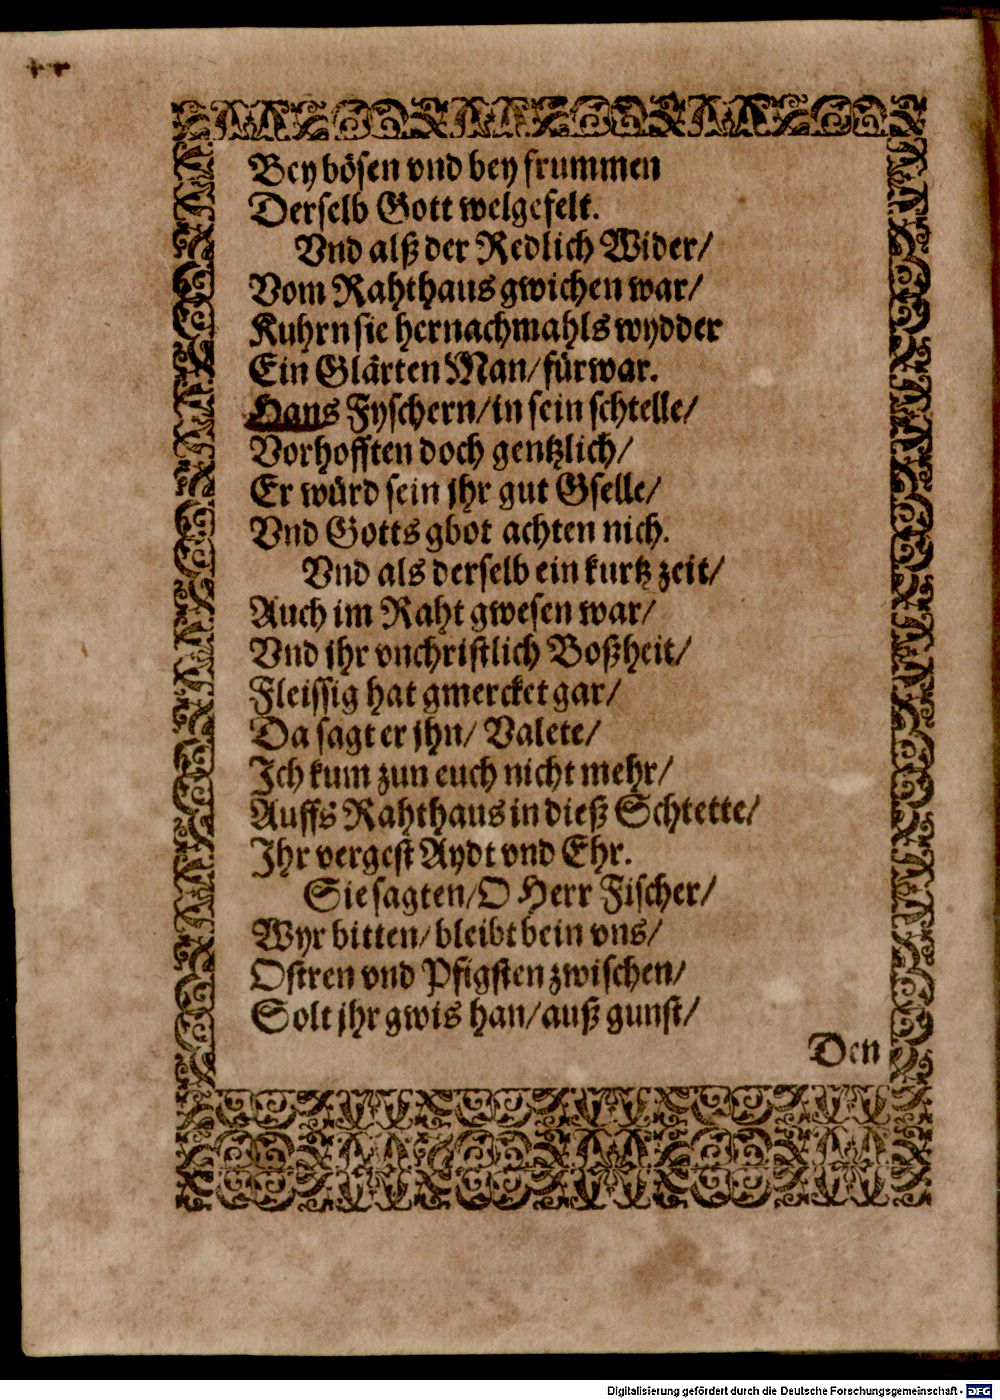 Bey bösen vnd bey frummen
Derselb Gott welgefelt.
Vnd alß der Redlich Wider/
Vom Rahthaus gwichen war/
Kuhrn sie hernachmahls wydder
Ein Glärten Man/ fürwar.
Hans Fyschern/ in sein schtelle/
Vorhofften doch gentzlich/
Er würd sein jhr gut Gselle/
Vnd Gotts gbot achten nich.
Vnd als derselb ein kurtz zeit/
Auch im Raht gwesen war/
Vnd jhr vnchristlich Boßheit/
Fleissig hat gmercket gar/
Da sagt er jhn/ Valete/
Ich kum zun euch nicht mehr/
Auffs Rahthaus in dieß Schtette/
Ihr vergest Aydt vnd Ehr.
Sie sagten/ O Herr Fischer/
Wyr bitten/ bleibt bein vns/
Ostren vnd Pfigsten zwischen/
Solt jhr gwis han/ auß gunst/
Den
Digitalisierung gefördert durch die Deutsche Forschungsgemeinschaft - DFG